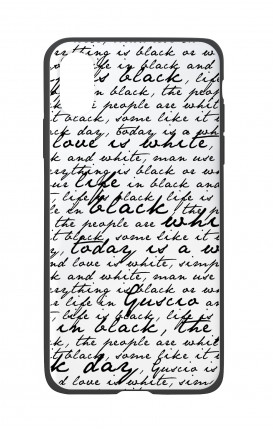 erything is black or w
life in black and
is black, life
in black, the p
the people are white
t black, some like it
k day, today is a whi
love is white,
k and white, man use
erything is black or w
ur life in black an
life is black, life is
e in black, the p
the people are whi
t black, some like it
, today is a w
nd love is white, simp
k and white, man use
erything is black or w
r life in Guscio an
is black, life is
in black, the
k, the people are whit
t black, some like it
k day, Guscio is
d love is white, sim